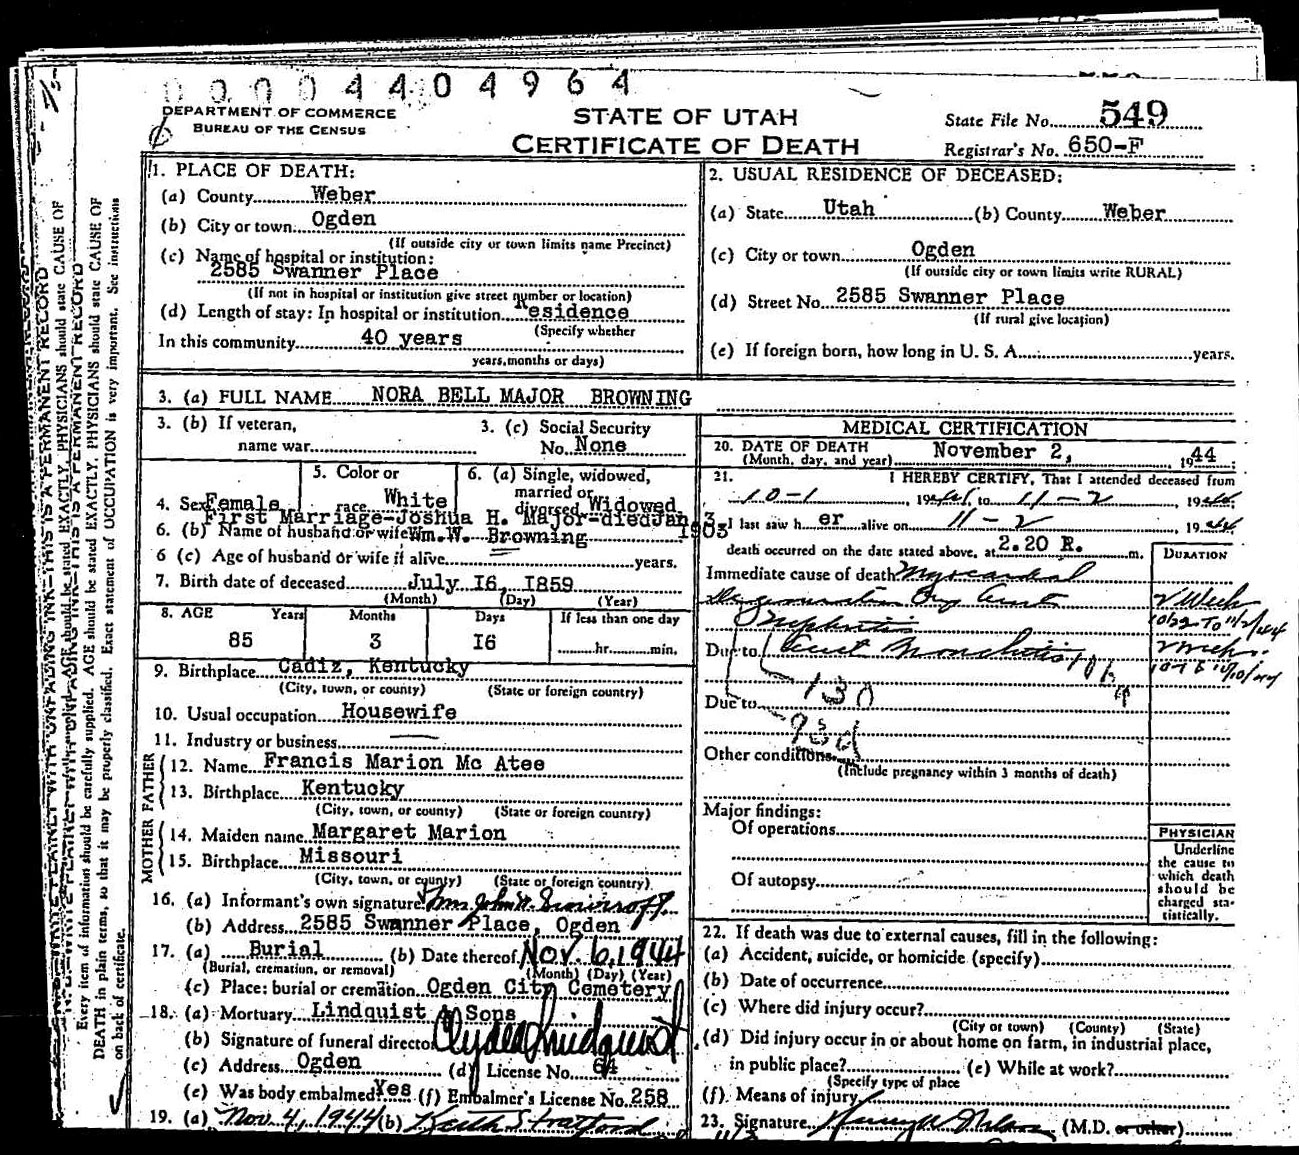 0000 4404964
DEPARTMENT OF COMMERCE
BUREAU OF THE CENSUS
STATE OF UTAH
CERTIFICATE OF DEATH
State File No. 549
Registrar's No. 650-F
1. PLACE OF DEATH:
(a) County Weber
(b) City or town Ogden
(If outside city or town limits name Precinct)
(c) Name of hospital or institution:
2585 Swanner Place
(If not in hospital or institution give street number or location)
(d) Length of stay: In hospital or institution Residence
(Specify whether
In this community 40 years
years, months or days)
2. USUAL RESIDENCE OF DECEASED:
(a) State Utah (b) County Weber
(c) City or town Ogden
(If outside city or town limits write RURAL)
(d) Street No. 2585 Swanner Place
(If rural give location)
(e) If foreign born, how long in U. S. A. years.
3. (a) FULL NAME NORA BELL MAJOR BROWNING
3. (b) If veteran,
name war
3. (c) Social Security
No. None
4. Sex Female
5. Color or
race White
6. (a) Single, widowed,
married or
divorced Widowed
First Marriage-Joshua H. Major-died Jan 3, 1903
6. (b) Name of husband or wife Wm. W. Browning
6 (c) Age of husband or wife if alive years.
7. Birth date of deceased July I6, I859
(Month) (Day) (Year)
8. AGE Years Months Days If less than one day
85 3 I6 hr. min.
9. Birthplace Cadiz, Kentucky
(City, town, or county) (State or foreign country)
10. Usual occupation Housewife
11. Industry or business
FATHER
12. Name Francis Marion Mc Atee
13. Birthplace Kentucky
(City, town, or county) (State or foreign country)
MOTHER
14. Maiden name Margaret Marion
15. Birthplace Missouri
(City, town, or county) (State or foreign country)
16. (a) Informant's own signature
(b) Address 2585 Swanner Place, Ogden
17. (a) Burial (b) Date thereof Nov. 6, 1944
(Burial, cremation, or removal) (Month) (Day) (Year)
(c) Place: burial or cremation Ogden City Cemetery
18. (a) Mortuary Lindquist & Sons
(b) Signature of funeral director Clyde Lindquist
(c) Address Ogden (d) License No. 64
(e) Was body embalmed? Yes (f) Embalmer's License No. 258
19. (a) Nov. 4, 1944 (b) Keith Stratford
MEDICAL CERTIFICATION
20. DATE OF DEATH November 2, 1944
(Month, day, and year)
21. I HEREBY CERTIFY, That I attended deceased from
10-1, 1944, to 11-2 1944
I last saw her alive on 11-2 1944
death occurred on the date stated above, at 2.20 P. m.
DURATION
Immediate cause of death Myocardial
Degeneration
Nephritis
Due to
130
Due to
93d
Other conditions
(Include pregnancy within 3 months of death)
Major findings:
Of operations
Of autopsy
PHYSICIAN
Underline
the cause to
which death
should be
charged sta-
tistically.
22. If death was due to external causes, fill in the following:
(a) Accident, suicide, or homicide (specify)
(b) Date of occurrence
(c) Where did injury occur?
(City or town) (County) (State)
(d) Did injury occur in or about home on farm, in industrial place,
in public place? (e) While at work?
(Specify type of place
(f) Means of injury
23. Signature (M.D. or other)
Every item of information should be carefully supplied. AGE should be stated EXACTLY. PHYSICIANS should state CAUSE OF
DEATH in plain terms, so that it may be properly classified. Exact statement of OCCUPATION is very important. See instructions
on back of certificate.